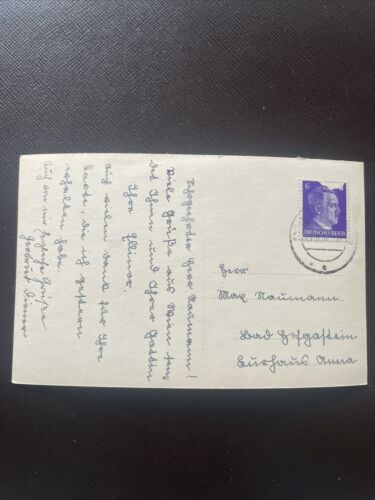 Sehrgeehrter Herr Naumann!
Viele Grüße aus Wien sen-
det Ihnen und Ihrer Gattin
Ihre Ellinor.
Auch vielen Dank für Ihre
Karte, die ich gestern
erhalten habe.
Auch von mir herzliche Grüße
6
DEUTSCHES REICH
Herr
Max Naumann
Bad Hofgastein
Kurhaus Anna